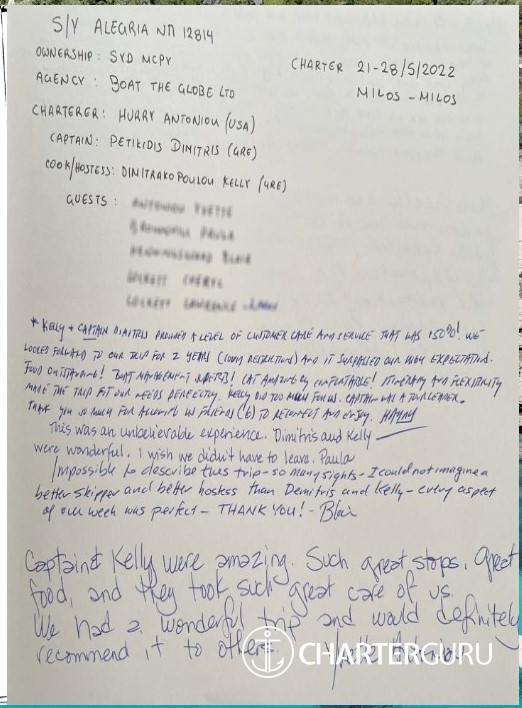 S/Y ALEGRIA NΠ 12814
OWNERSHIP: SYD MCPY
CHARTER 21-28/5/2022
AGENCY: BOAT THE GLOBE LTD
MILOS - MILOS
CHARTERER: HURRY ANTONIOU (USA)
CAPTAIN: PETIKIDIS DIMITRIS (GRE)
COOK/HOSTESS: DIMITRAKOPOULOU KELLY (GRE)
GUESTS:
* KELLY + CAPTAIN DIMITRIS PROVIDED A LEVEL OF CUSTOMER CARE AND SERVICE THAT WAS 150%! WE
LOOKED FORWARD TO OUR TRIP FOR 2 YEARS (COVID RESTRICTIONS) AND IT SURPASSED OUR HIGH EXPECTATION.
FOOD OUTSTANDING! BOAT MANAGEMENT SUPERB! CAT AMAZINGLY COMFORTABLE! ITINERARY AND FLEXIBILITY
MADE THE TRIP FIT OUR NEEDS PERFECTLY. KELLY DID TOO MUCH FOR US. CAPTAIN WAS A TOUR LEADER.
THANK YOU SO MUCH FOR ALLOWING US FRIENDS (6) TO RECONNECT AND ENJOY.
This was an unbelievable experience. Dimitris and Kelly
were wonderful. I wish we didn't have to leave. Paula
Impossible to describe this trip - so many sights - I could not imagine a
better skipper and better hostess than Demitris and Kelly - every aspect
of our week was perfect - THANK YOU! - Blair
Captain & Kelly were amazing. Such great stops, great
food, and they took such great care of us.
We had a wonderful trip and would definitely
recommend it to others.
CHARTERGURU